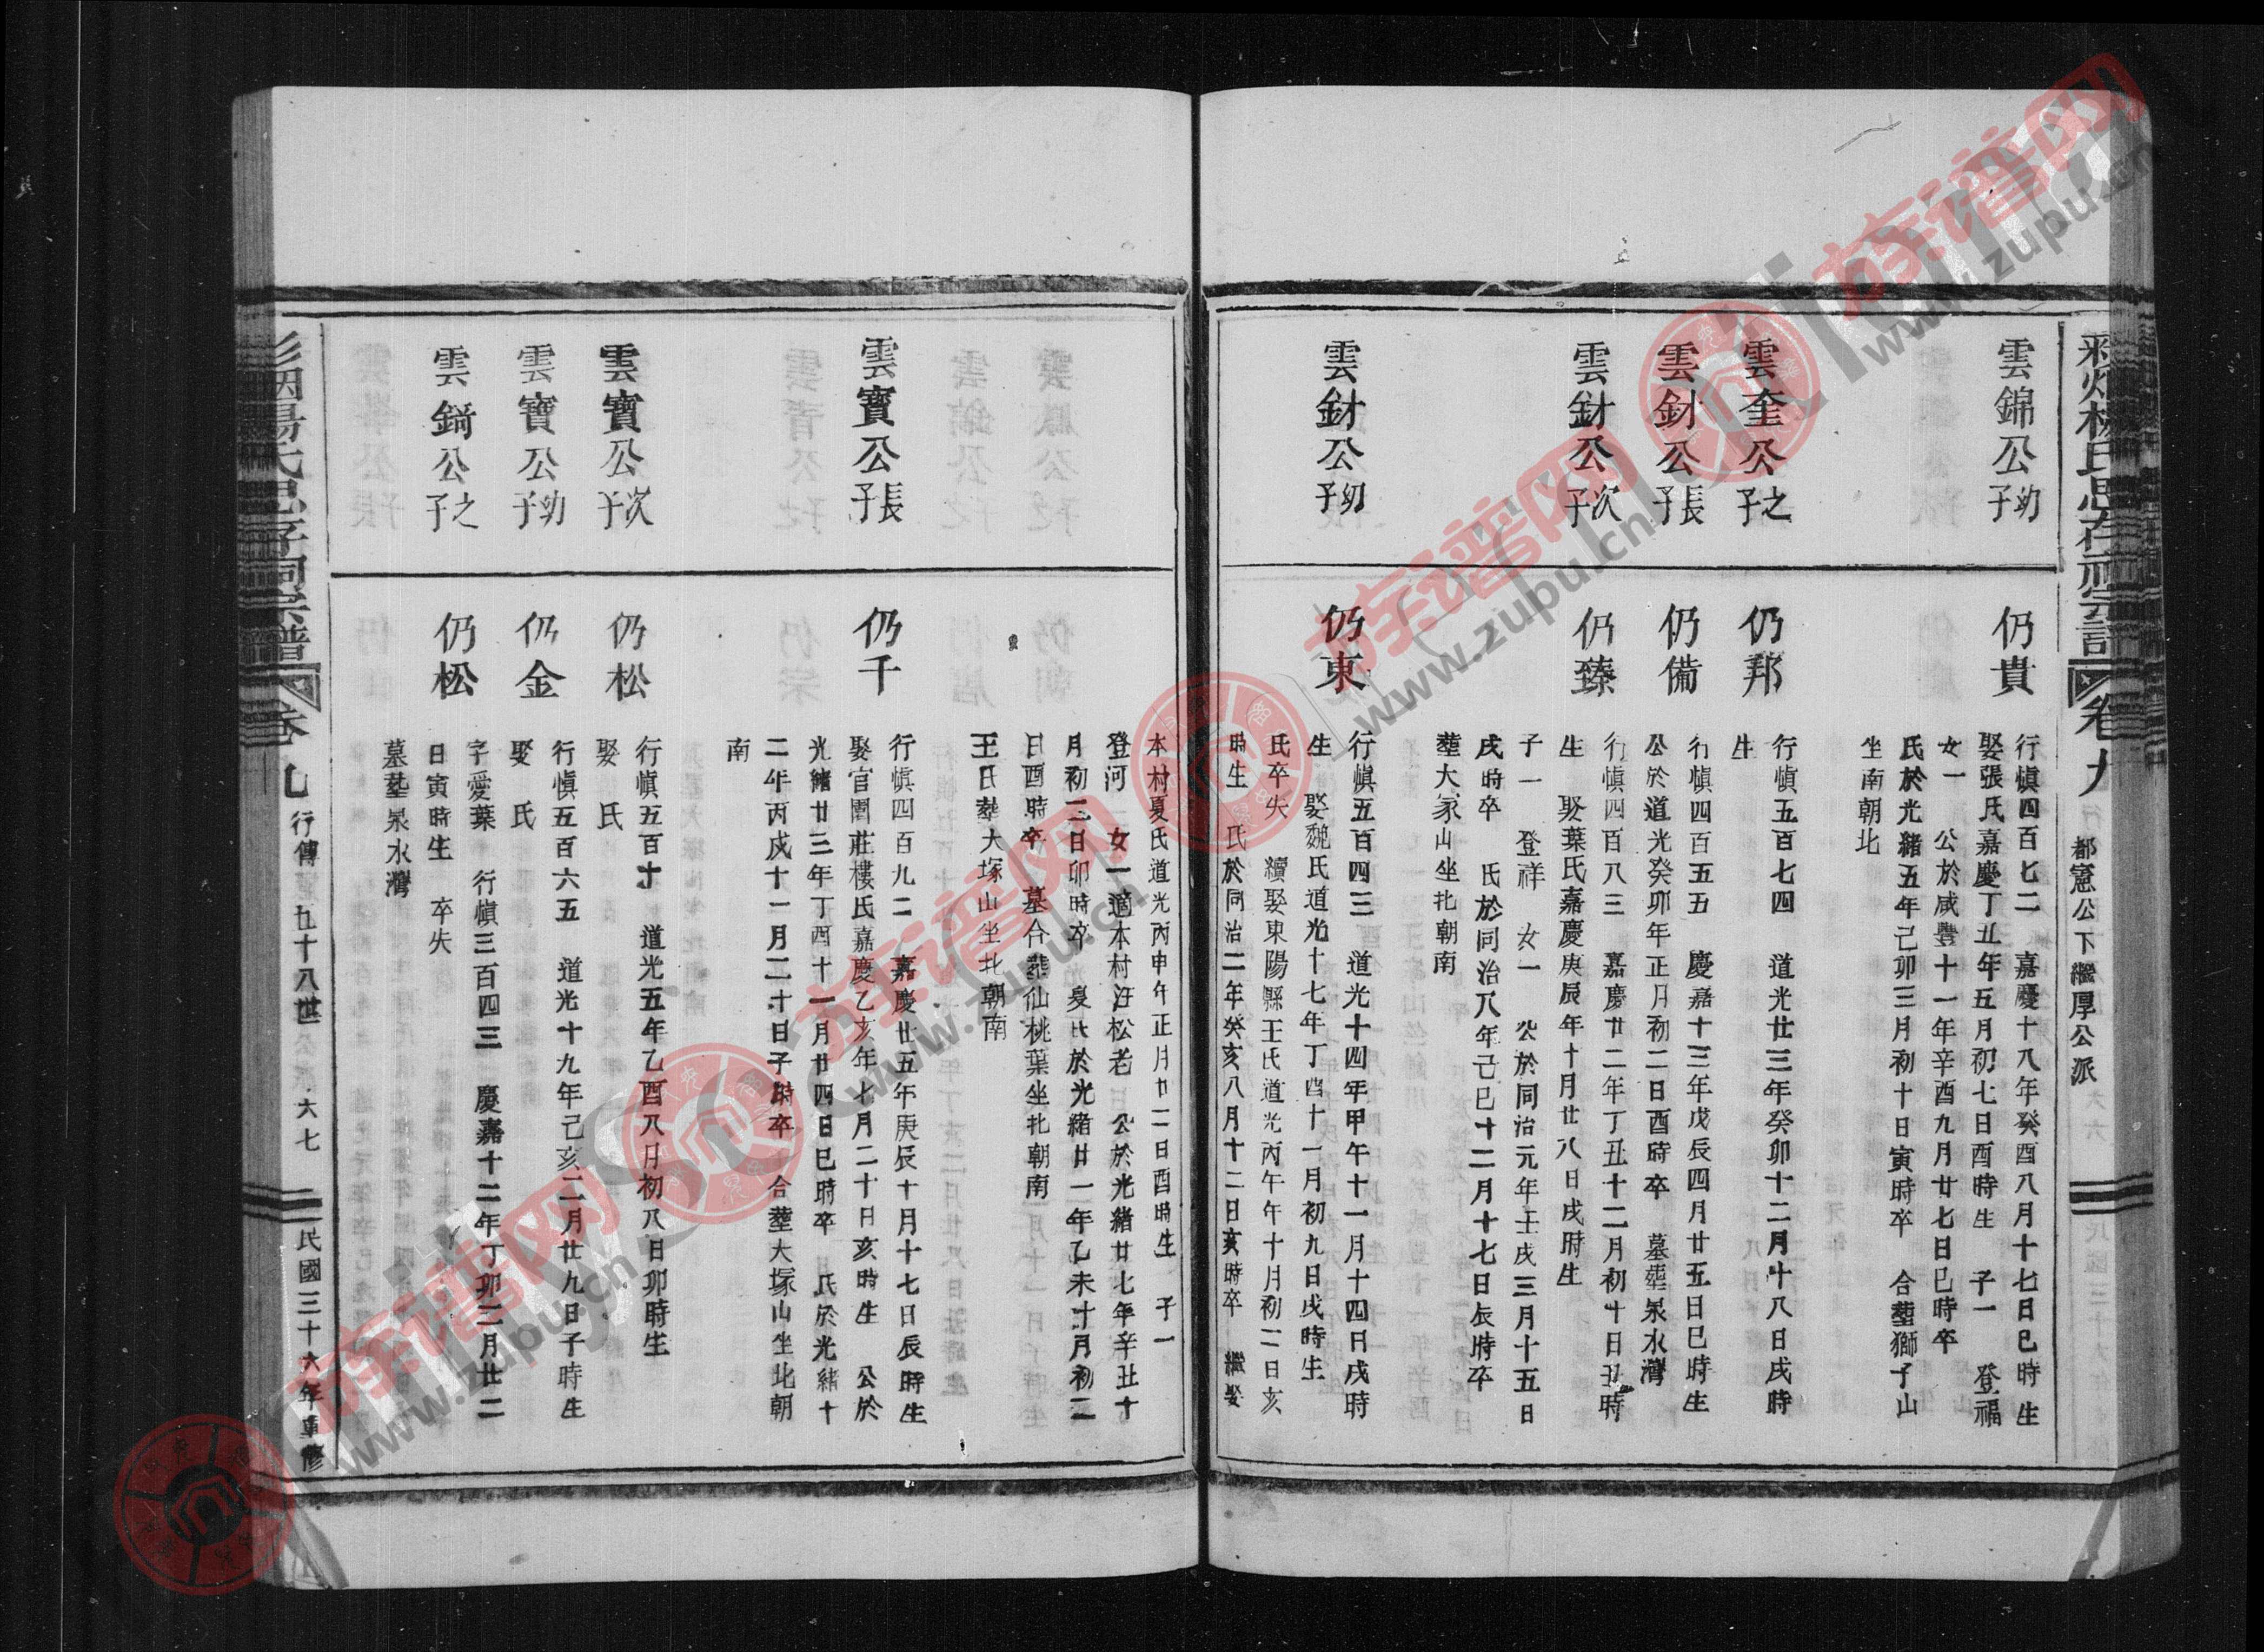 楊氏思存祠宗譜
卷九
都憲公下繼厚公派
雲錦公幼子
仍貴
行愼四百七二 嘉慶十八年癸酉八月十七日巳時生
娶張氏嘉慶丁丑年五月初七日酉時生 子一 登福
女一 公於咸豐十一年辛酉九月廿七日巳時卒
氏於光緒五年己卯三月初十日寅時卒 合塟獅子山
坐南朝北
雲奎公之子
仍邦
行愼五百七四 道光廿三年癸卯十二月十八日戌時
生
雲財公長子
仍備
行愼四百五五 慶嘉十三年戊辰四月廿五日巳時生
公於道光癸卯年正月初二日酉時卒 墓塟泉水灣
雲財公次子
仍臻
行愼四百八三 嘉慶廿二年丁丑十二月初十日丑時
生 娶葉氏嘉慶庚辰年十月廿八日戌時生
子一 登祥 女一 公於同治元年壬戌三月十五日
戌時卒 氏於同治八年己巳十二月十七日辰時卒
塟大冢山坐北朝南
雲財公幼子
仍東
行愼五百四三 道光十四年甲午十一月十四日戌時
生 娶魏氏道光十七年丁酉十一月初九日戌時生
氏卒失 續娶東陽縣王氏道光丙午年十月初二日亥
時生 氏於同治二年癸亥八月十二日亥時卒 繼娶
本村夏氏道光丙申年正月廿二日酉時生 子一
登河 女一適本村汪松老 公於光緒廿七年辛丑十
月初三日卯時卒 夏氏於光緒廿一年乙未十月初二
日酉時卒 墓合塟仙桃葉坐北朝南
王氏塟大塚山坐北朝南
雲寶公長子
仍千
行愼四百九二 嘉慶廿五年庚辰十月十七日辰時生
娶官圍莊樓氏嘉慶乙亥年七月二十日亥時生 公於
光緒廿三年丁酉十一月廿四日巳時卒 氏於光緒十
二年丙戌十一月二十日子時卒 合塟大塚山坐北朝
南
雲寶公次子
仍松
行愼五百十 道光五年乙酉八月初八日卯時生
娶 氏
雲寶公幼子
仍金
行愼五百六五 道光十九年己亥二月廿九日子時生
娶 氏
雲錡公之子
仍松
字愛葉 行愼三百四三 慶嘉十二年丁卯二月廿二
日寅時生 卒失
墓塟泉水灣
楊氏思存祠宗譜
卷九
行傳
五十八世
六七
民國三十六年重修
族谱网
www.zupu.cn